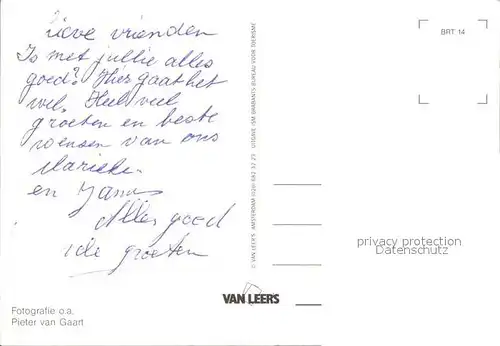 Lieve vrienden
Is met jullie alles
goed? Hier gaat het
wel. Heel veel
groeten en beste
wensen van ons
Marieke
en Jannus
Alles goed
groeten
Fotografie o.a.
Pieter van Gaart
© VAN LEER'S AMSTERDAM (020) 682 32 25 UITGAVE ISM BRABANTS BUREAU VOOR TOERISME
VAN LEERS
BRT 14
privacy protection
Datenschutz